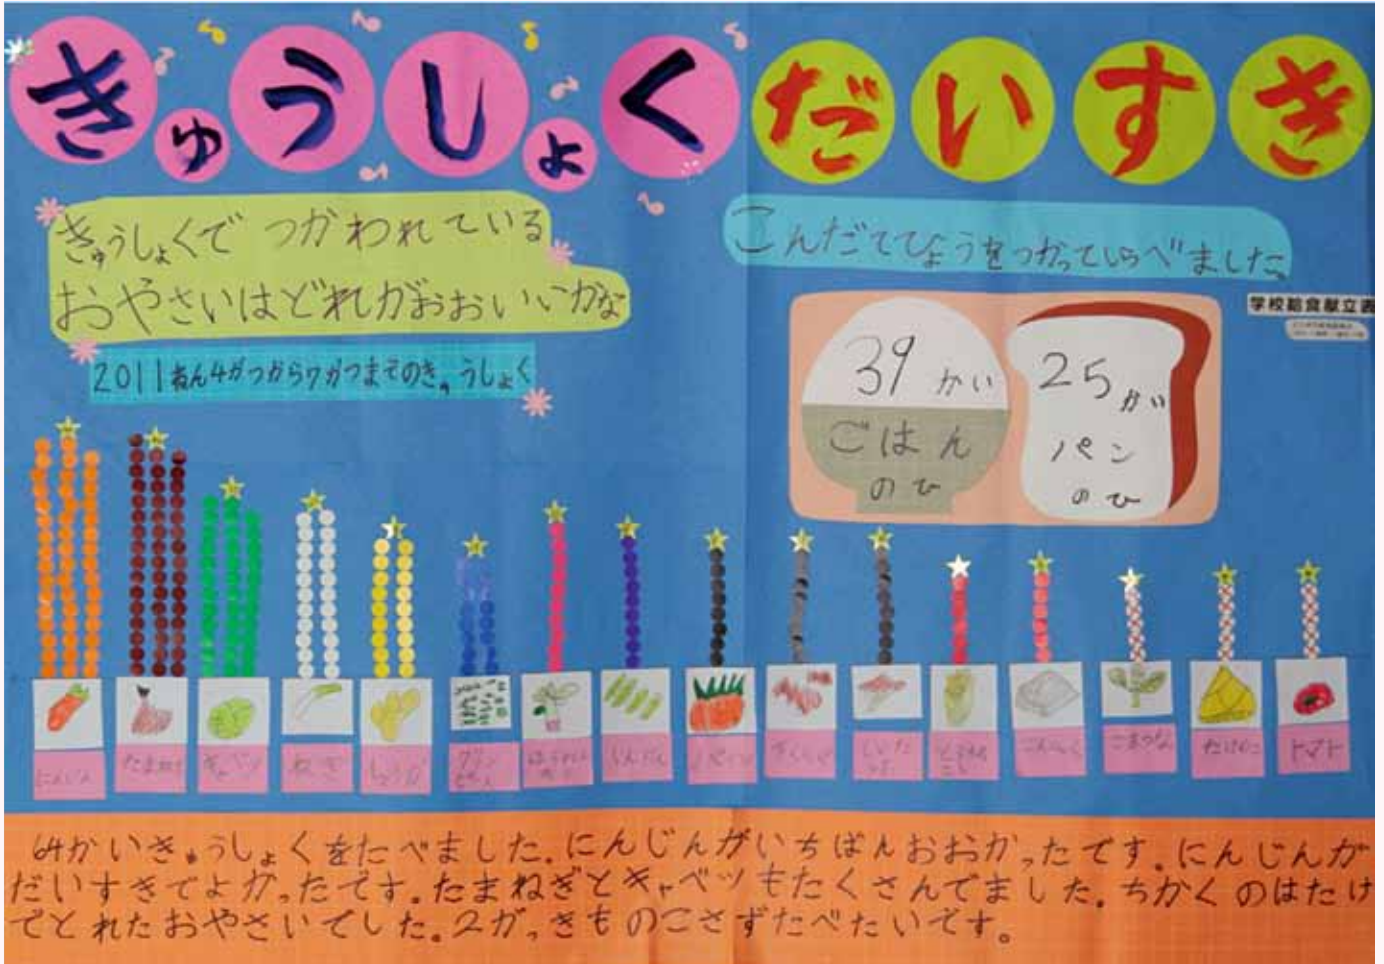 きゅうしょくだいすき
きゅうしょくで つかわれている
おやさいはどれがおおいいかな
2011ねん4がつから7がつまでのきゅうしょく
こんだてひょうをつかってしらべました。
学校給食献立表
39かい
ごはん
のひ
25かい
パン
のひ
にんじん
たまねぎ
キャベツ
ねぎ
しょうが
いんげん
しいた
け
こんにゃく
こまつな
たけのこ
トマト
64かいきゅうしょくをたべました.にんじんがいちばんおおかったです.にんじんが
だいすきでよかったです。たまねぎとキャベツもたくさんでました.ちかくのはたけ
でとれたおやさいでした。2がっきものこさずたべたいです。